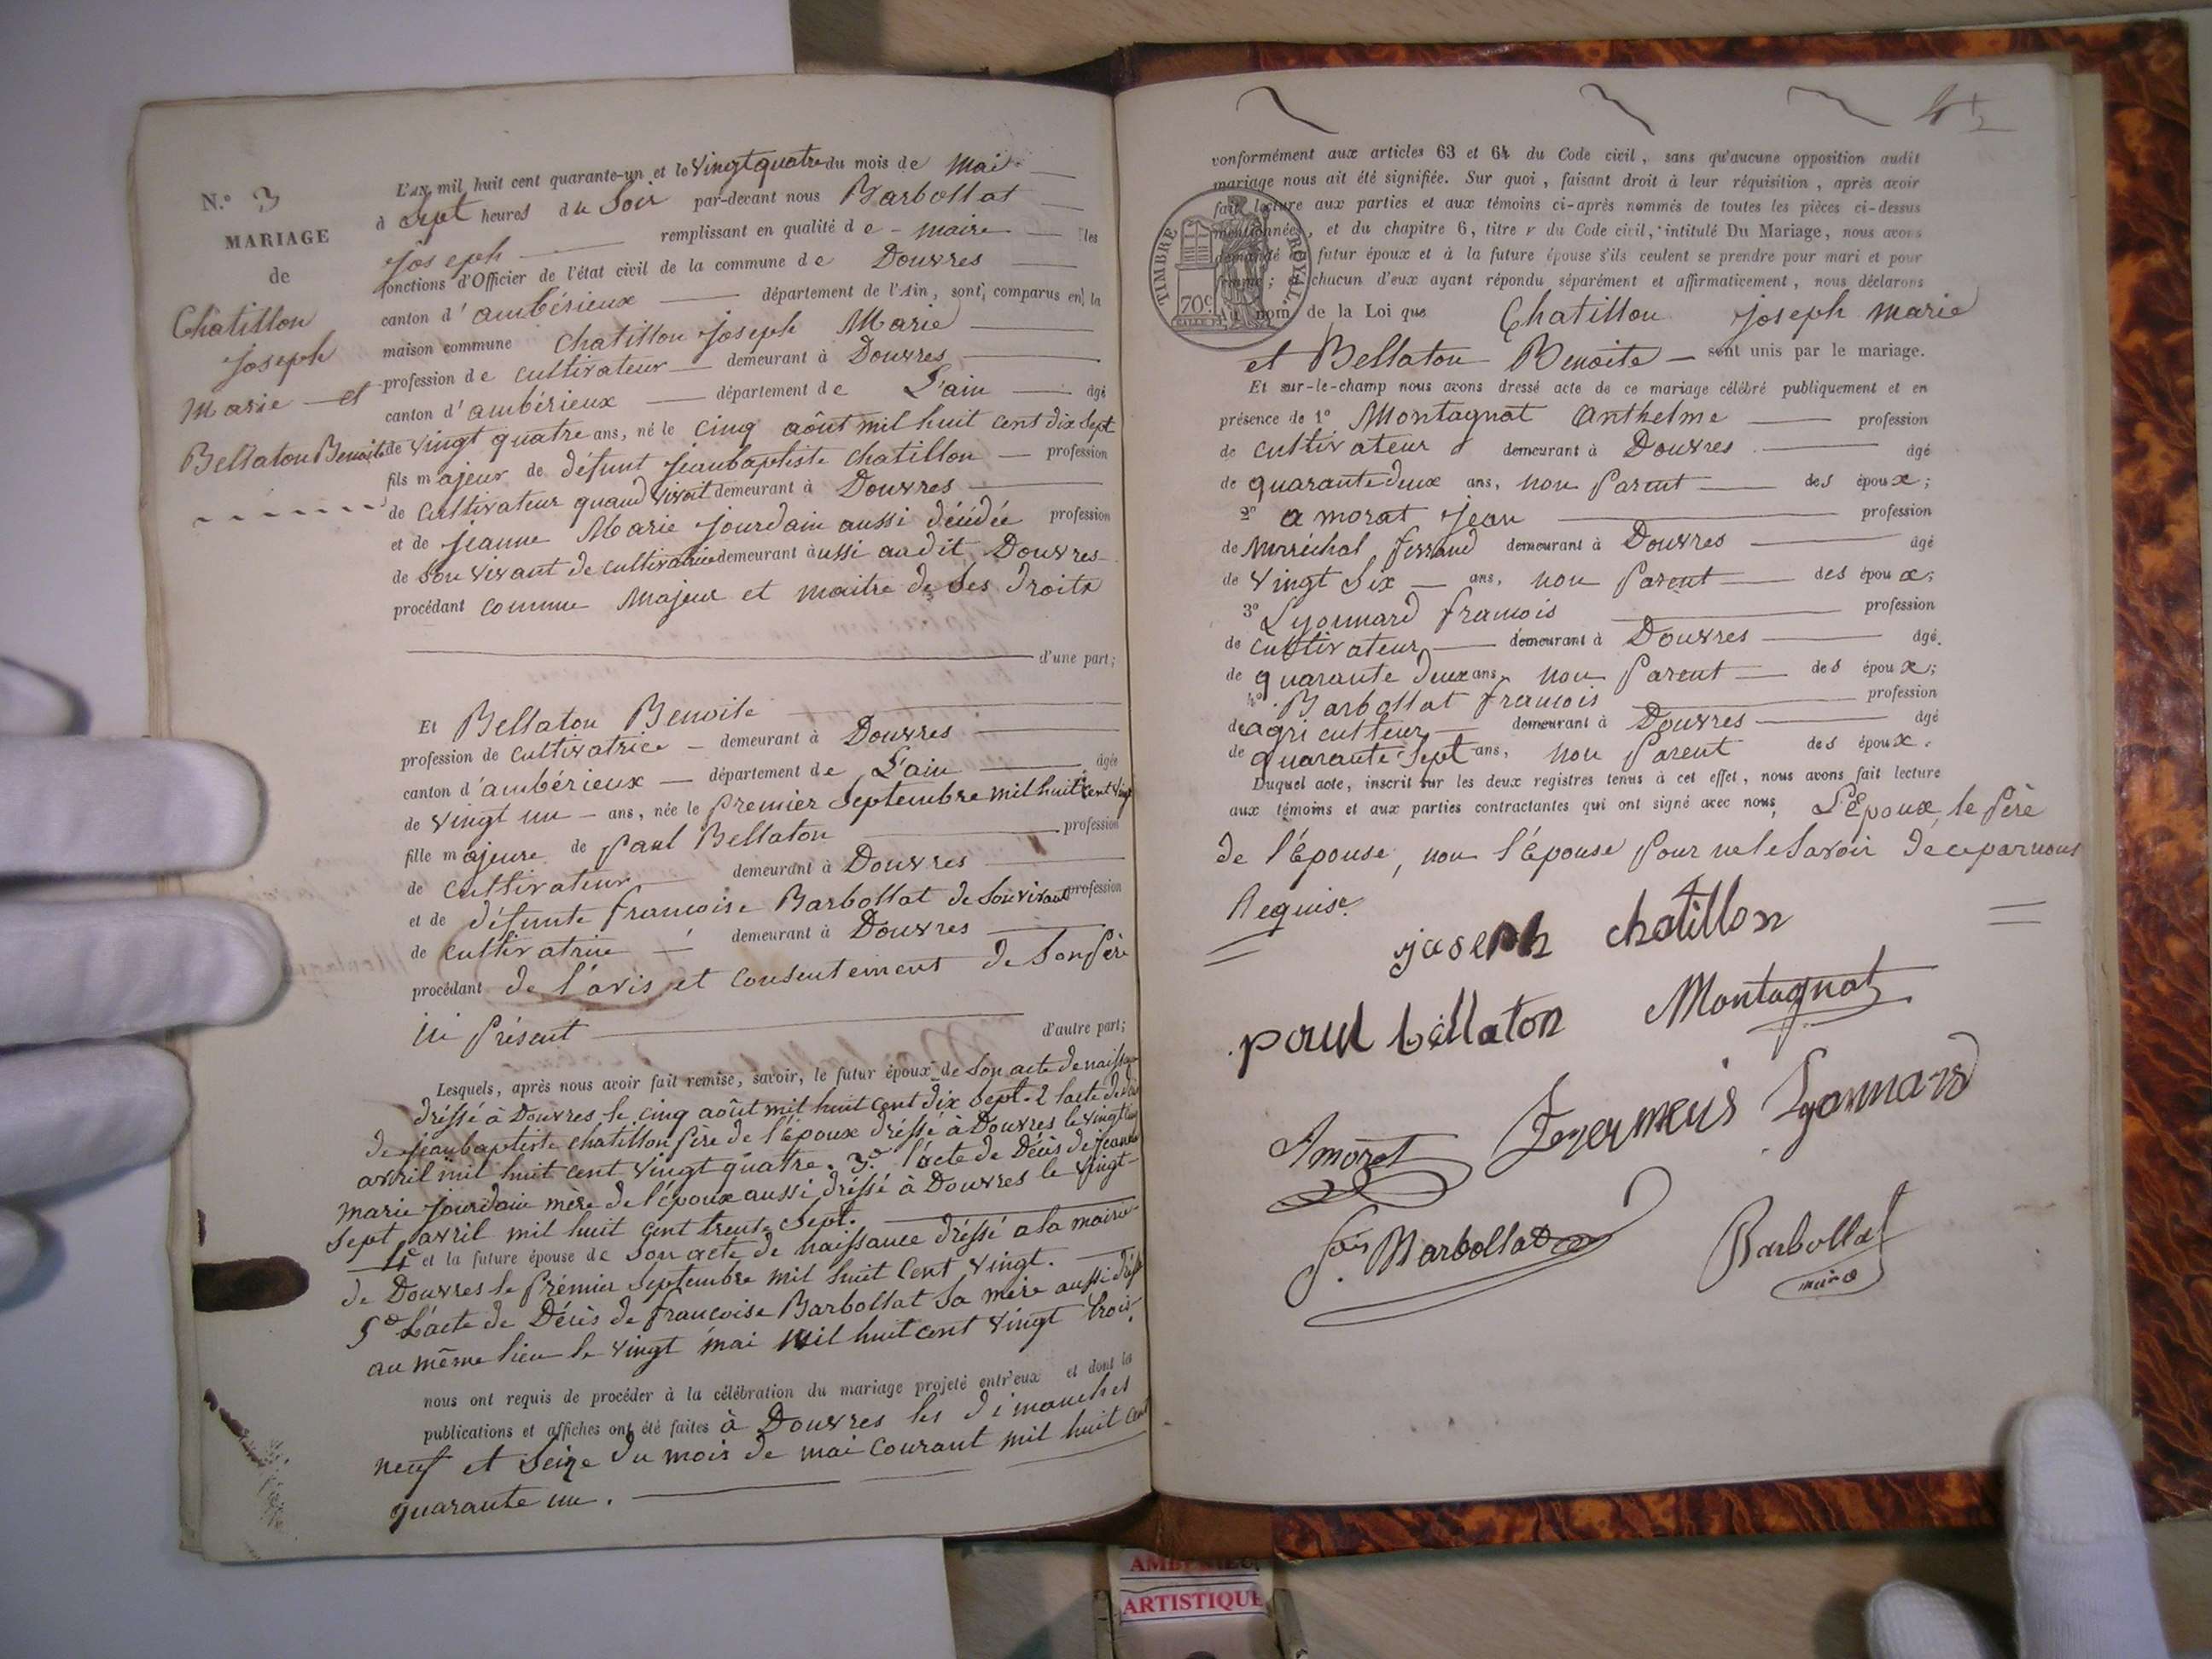 N.° 3
MARIAGE
de
Chatillon
Joseph
Marie et
Bellaton Benoite
L'AN mil huit cent quarante-un et le vingt quatre du mois de Mai
à Sept heures du Soir par-devant nous Barbollat
Joseph remplissant en qualité de maire les
fonctions d'Officier de l'état civil de la commune de Douvres
canton d'ambérieux département de l'Ain, sont comparus en la
maison commune Chatillon Joseph Marie
profession de cultivateur demeurant à Douvres
canton d'ambérieux département de L'ain âgé
de vingt quatre ans, né le cinq août mil huit cent dix sept
fils majeur de défunt jeanbaptiste chatillon profession
de cultivateur quand vivait demeurant à Douvres
et de jeanne Marie jourdain aussi décédée profession
de Son vivant de cultivatrice demeurant aussi audit Douvres
procédant comme Majeur et maitre de Ses Droits
d'une part;
Et Bellaton Benoite
profession de cultivatrice demeurant à Douvres
canton d'ambérieux département de L'ain âgée
de vingt un ans, née le premier Septembre mil huit cent vingt
fille majeure de Paul Bellaton profession
de cultivateur demeurant à Douvres
et de défunte francoise Barbollat de Son vivant profession
de cultivatrice demeurant à Douvres
procédant de l'avis et consentement de Son Père
ici Présent d'autre part;
Lesquels, après nous avoir fait remise, savoir, le futur époux de Son acte de naissance
dréssé à Douvres le cinq août mil huit cent dix Sept. 2 l'acte de décès
de jeanbaptiste chatillon père de l'Epoux dréssé à Douvres le vingt
avril mil huit cent vingt quatre. 3.° l'acte de Décès de jeanne
marie jourdain mère de l'époux aussi dréssé à Douvres le vingt-
Sept avril mil huit cent trente Sept.
4° et la future épouse de Son acte de naissance dréssé a la mairie
de Douvres le premier Septembre mil huit Cent vingt.
5° L'acte de Décès de francoise Barbollat Sa mère aussi dréssé
au même lieu le vingt mai mil huit cent vingt trois.
nous ont requis de procéder à la célébration du mariage projeté entr'eux et dont les
publications et affiches ont été faites à Douvres les dimanches
neuf et Seize du mois de mai courant mil huit cent
quarante un.
4
conformément aux articles 63 et 64 du Code civil, sans qu'aucune opposition audit
mariage nous ait été signifiée. Sur quoi, faisant droit à leur réquisition, après avoir
fait lecture aux parties et aux témoins ci-après nommés de toutes les pièces ci-dessus
mentionnées, et du chapitre 6, titre v du Code civil, intitulé Du Mariage, nous avons
demandé au futur époux et à la future épouse s'ils veulent se prendre pour mari et pour
femme; et chacun d'eux ayant répondu séparément et affirmativement, nous déclarons
TIMBRE ROYAL.
70c.
Au nom de la Loi que Chatillon Joseph Marie
et Bellaton Benoite sont unis par le mariage.
Et sur-le-champ nous avons dressé acte de ce mariage célébré publiquement et en
présence de 1° Montagnat Anthelme profession
de cultivateur demeurant à Douvres âgé
de quarante deux ans, non Parent des époux;
2° amorat Jean profession
de Maréchal ferrand demeurant à Douvres âgé
de vingt Six ans, non Parent des époux;
3° Lyonnard francois profession
de cultivateur demeurant à Douvres âgé
de quarante deux ans, non Parent des époux;
4° Barbollat francois profession
de agriculteur demeurant à Douvres âgé
de quarante Sept ans, non Parent des époux.
Duquel acte, inscrit sur les deux registres tenus à cet effet, nous avons fait lecture
aux témoins et aux parties contractantes qui ont signé avec nous, L'Epoux, le Père
de l'Epouse, non l'Epouse pour ne le Savoir de ce par nous
Requise.
joseph chatillon
paul bellaton Montagnat
Amorat Lyonnard
fois Barbollat Barbollat
maire
ARTISTIQUE